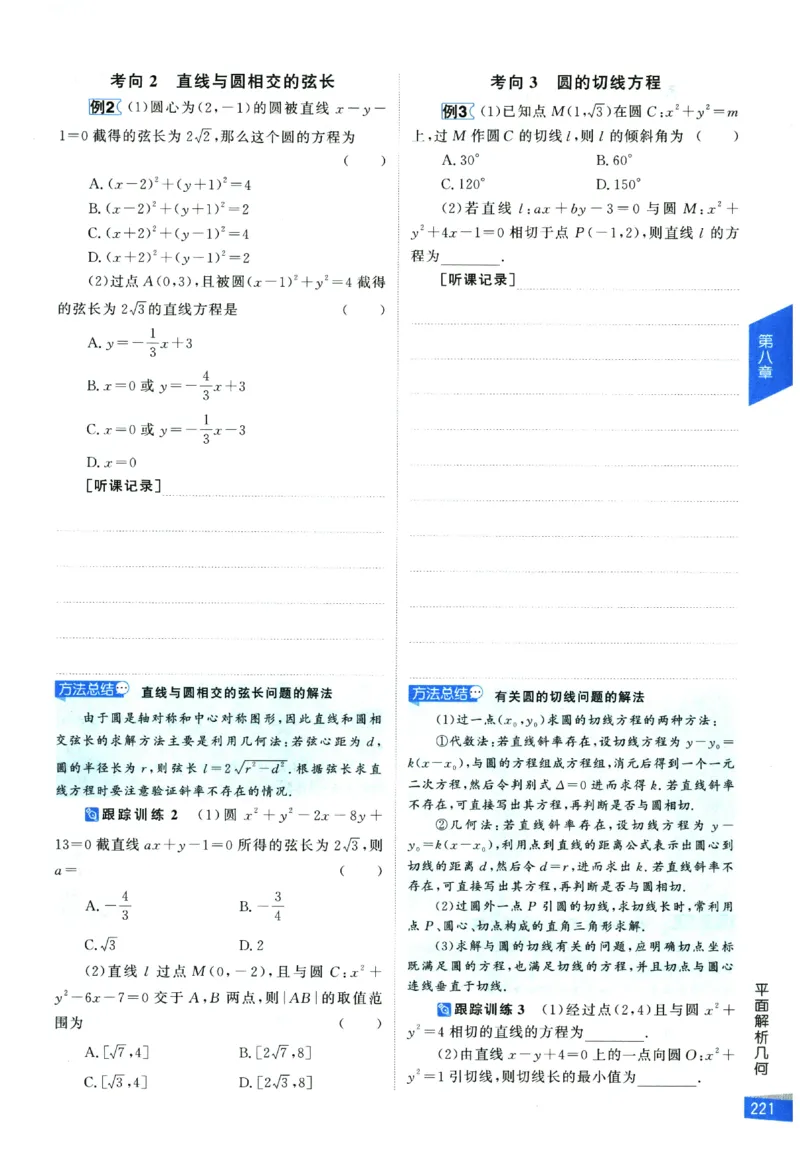 考向 2 直线与圆相交的弦长
例2 (1)圆心为(2,-1)的圆被直线 x-y-
1=0 截得的弦长为 2√2,那么这个圆的方程为
( )
A.(x-2)²+(y+1)²=4
B.(x-2)²+(y+1)²=2
C.(x+2)²+(y-1)²=4
D.(x+2)²+(y-1)²=2
(2)过点 A(0,3),且被圆(x-1)²+y²=4 截得
的弦长为 2√3的直线方程是 ( )
A.y=-1/3x+3
B.x=0 或 y=-4/3x+3
C.x=0 或 y=-1/3x-3
D.x=0
[听课记录]
方法总结 直线与圆相交的弦长问题的解法
由于圆是轴对称和中心对称图形,因此直线和圆相
交弦长的求解方法主要是利用几何法:若弦心距为 d,
圆的半径长为 r,则弦长 l=2√(r²-d²).根据弦长求直
线方程时要注意验证斜率不存在的情况.
跟踪训练 2 (1)圆 x²+y²-2x-8y+
13=0 截直线 ax+y-1=0 所得的弦长为 2√3,则
a= ( )
A.-4/3 B.-3/4
C.√3 D.2
(2)直线 l 过点 M(0,-2),且与圆 C:x²+
y²-6x-7=0 交于 A,B 两点,则|AB|的取值范
围为 ( )
A.[√7,4] B.[2√7,8]
C.[√3,4] D.[2√3,8]
考向 3 圆的切线方程
例3 (1)已知点 M(1,√3)在圆 C:x²+y²=m
上,过 M 作圆 C 的切线 l,则 l 的倾斜角为 ( )
A.30° B.60°
C.120° D.150°
(2)若直线 l:ax+by-3=0 与圆 M:x²+
y²+4x-1=0 相切于点 P(-1,2),则直线 l 的方
程为______.
[听课记录]
方法总结 有关圆的切线问题的解法
(1)过一点(x₀,y₀)求圆的切线方程的两种方法:
①代数法:若直线斜率存在,设切线方程为 y-y₀=
k(x-x₀),与圆的方程组成方程组,消元后得到一个一元
二次方程,然后令判别式 Δ=0 进而求得 k.若直线斜率
不存在,可直接写出其方程,再判断是否与圆相切.
②几何法:若直线斜率存在,设切线方程为 y-
y₀=k(x-x₀),利用点到直线的距离公式表示出圆心到
切线的距离 d,然后令 d=r,进而求出 k.若直线斜率不
存在,可直接写出其方程,再判断是否与圆相切.
(2)过圆外一点 P 引圆的切线,求切线长时,常利用
点 P、圆心、切点构成的直角三角形求解.
(3)求解与圆的切线有关的问题,应明确切点坐标
既满足圆的方程,也满足切线的方程,并且切点与圆心
连线垂直于切线.
跟踪训练 3 (1)经过点(2,4)且与圆 x²+
y²=4 相切的直线的方程为______.
(2)由直线 x-y+4=0 上的一点向圆 O:x²+
y²=1 引切线,则切线长的最小值为______.
第八章
平面解析几何
221